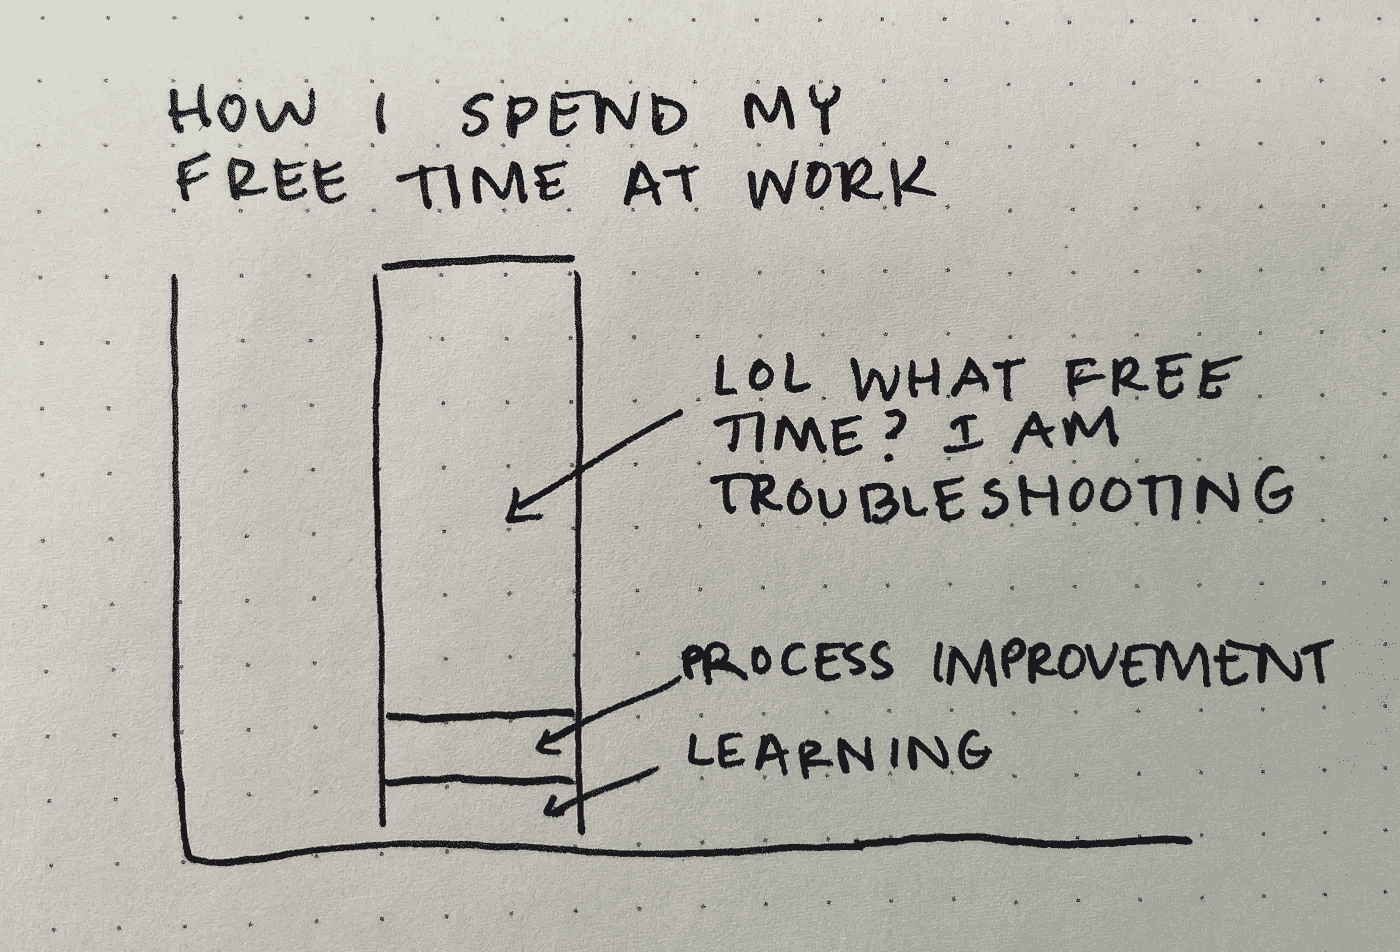 HOW I SPEND MY
FREE TIME AT WORK
LOL WHAT FREE
TIME? I AM
TROUBLESHOOTING
PROCESS IMPROVEMENT
LEARNING